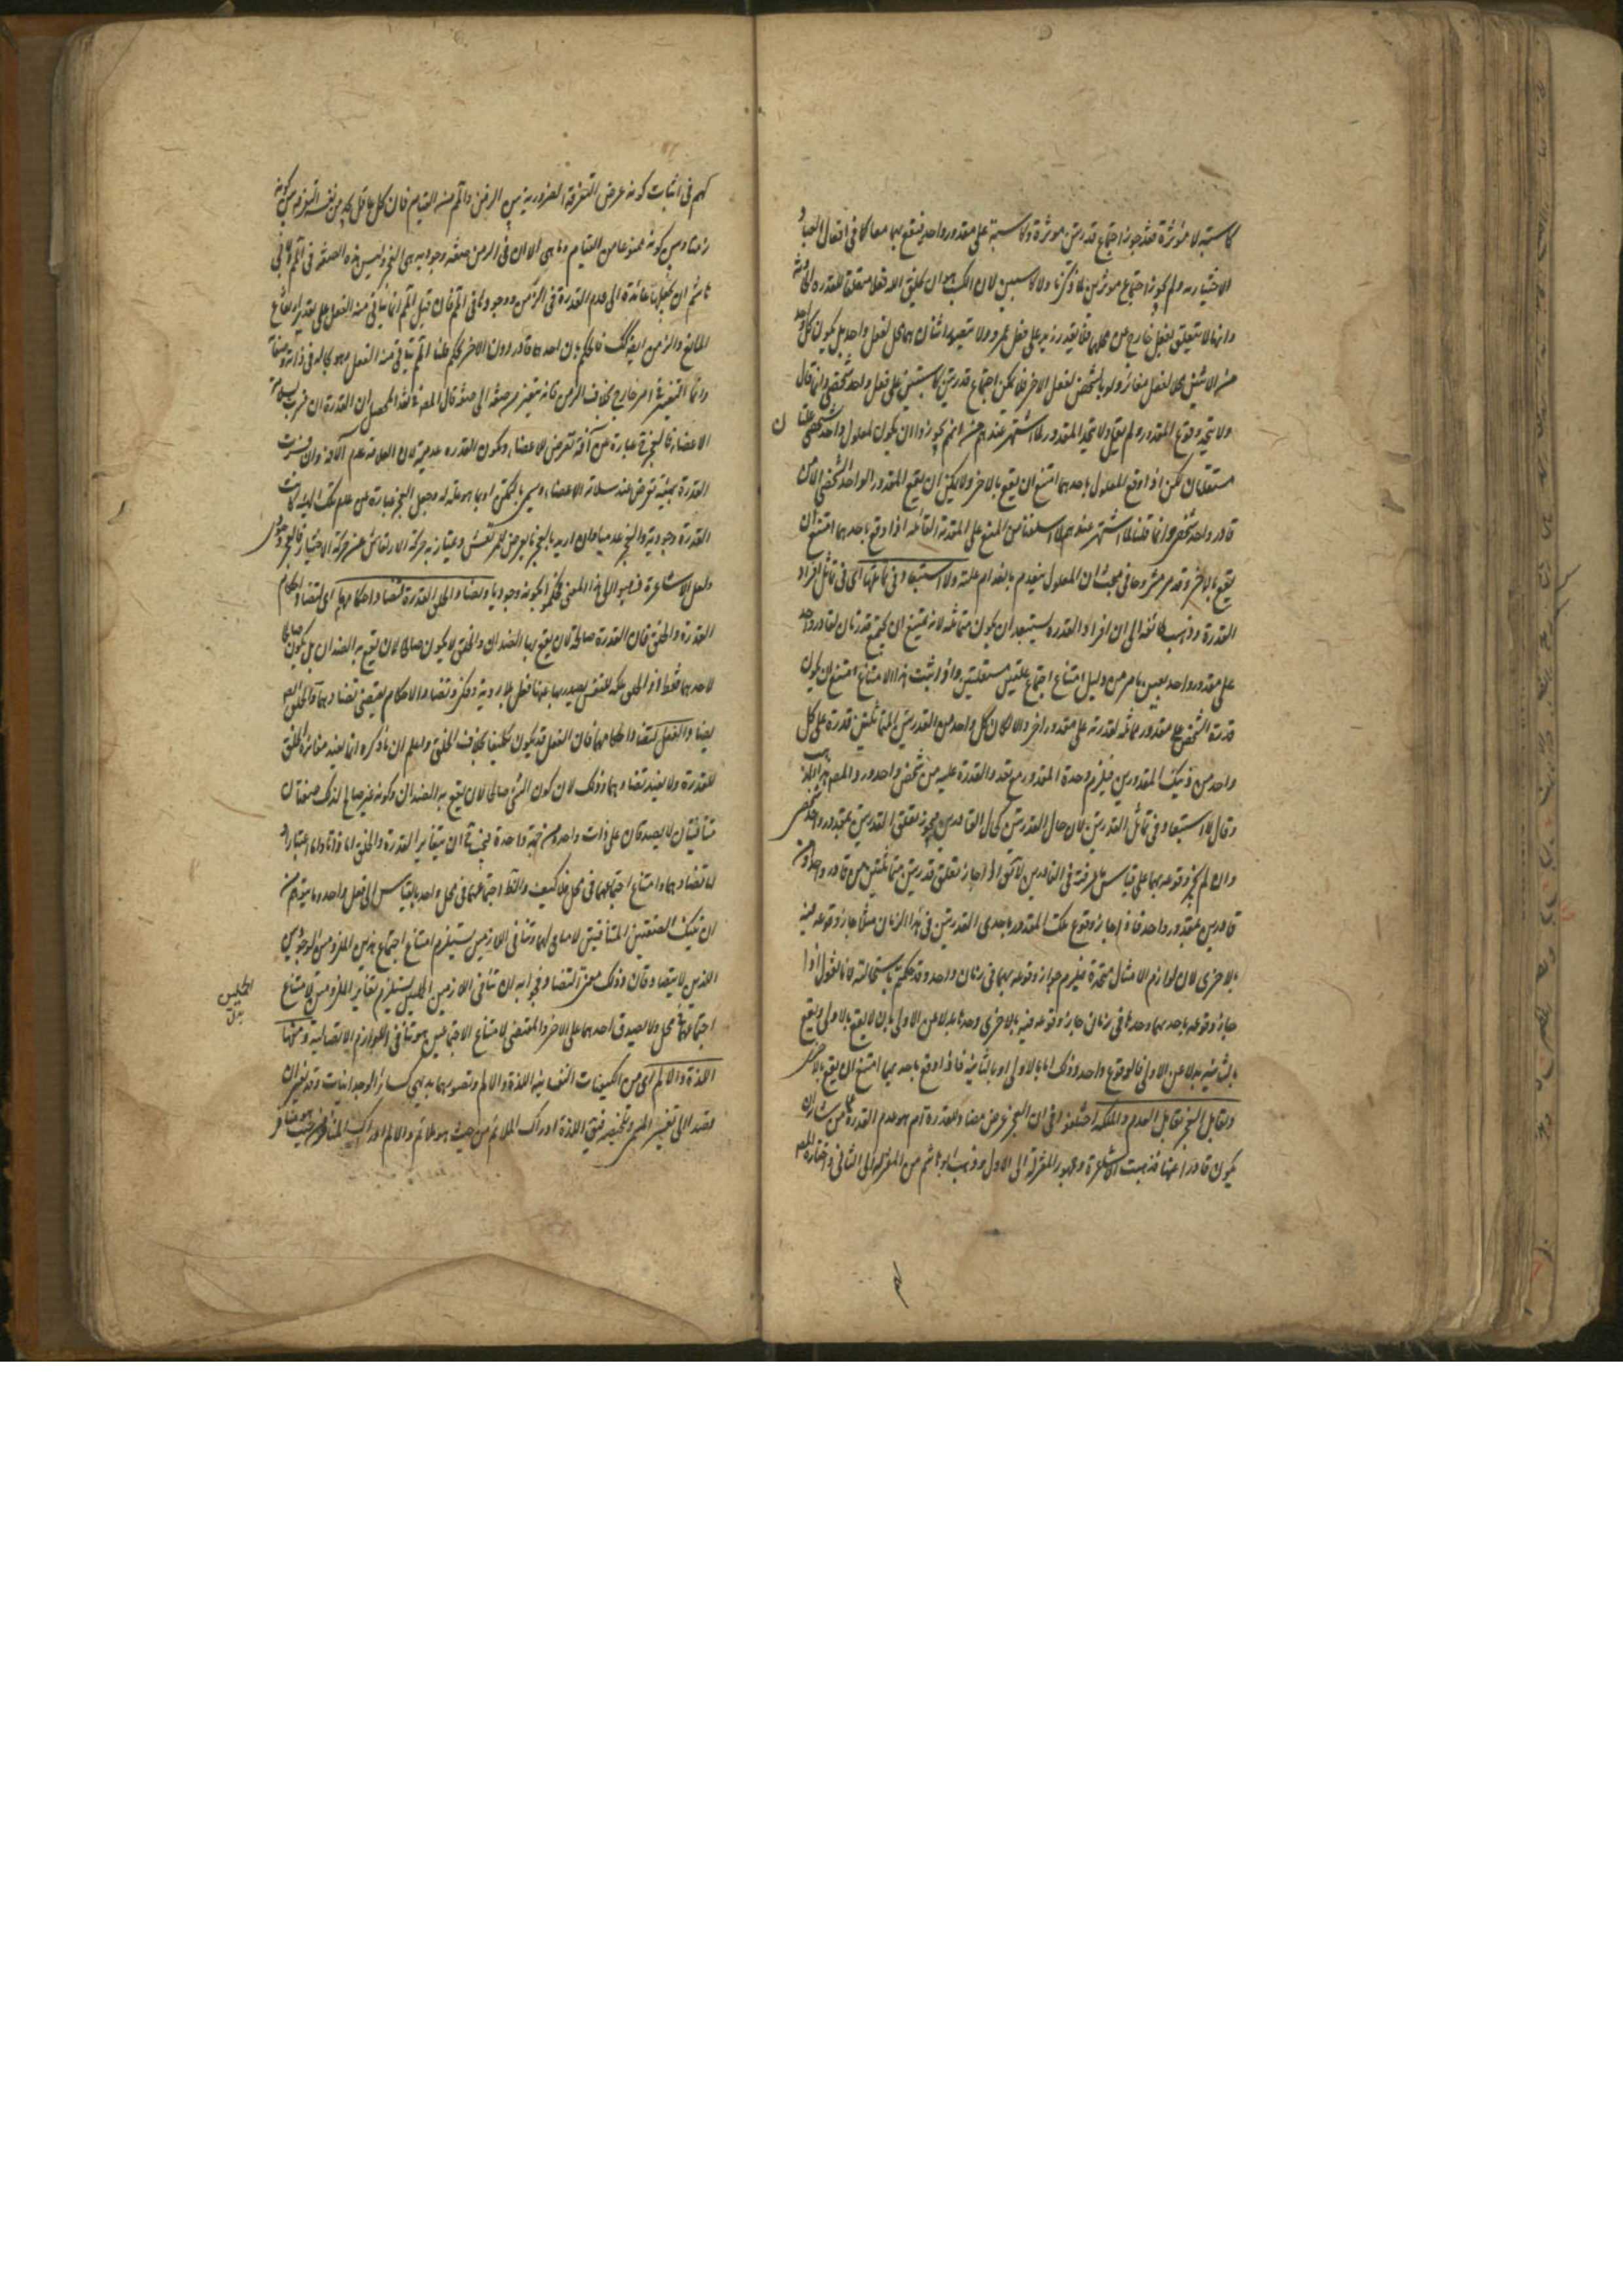 كاسبة لا مؤثرة فقد جوز اجتماع قدرتين مؤثرة وكاسبة على مقدور واحد فيقع بهما معا كما في افعال العباد
الاختيارية ولم يجوز اجتماع مؤثرين لما ذكرنا ولا كاسبين لان الكسب هو ان يخلق الله فعلا متعلقا للقدرة الحادثة
وانها لا يتعلق لفعل خارج عن محلها فلا يقدر زيد على فعل عمرو ولا يتصور اثنان هما محل لفعل واحد بل يكون كل واحد
من الاثنين محلا لفعل مغائر ولو بالشخص لفعل الاخر فلا يمكن اجتماع قدرتين كاسبتين على فعل واحد شخصي وانما قال
ولا يتحد وقوع المقدور ولم يقل ولا يتحد المقدور لما اشتهر عندهم من انهم يجوزوا ان يكون لمعلول واحد شخصي علتان
مستقلتان لكن اذا وقع المعلول باحدهما امتنع ان يقع بالاخر ولا يمكن ان يقع المقدور الواحد الشخصي الا من
قادر واحد شخصي وانما قلنا لما اشتهر عندهم لما اسلفنا من المنع على المقدمة القائلة اذا وقع باحدهما امتنع ان
يقع بالاخر وقد مر مشروحا في مبحث ان المعلول ينعدم بانعدام علته ولا استبعاد في تماثلها اى في تماثل افراد
القدرة وذهب طائفة الى ان افراد القدرة يستبعد ان يكون متماثلة لانه يمتنع ان يجتمع قدرتان لقادر واحد
على مقدور واحد بعين ما مر من دليل امتناع اجتماع علتين مستقلتين واذا ثبت هذا الامتناع امتنع ان يكون
قدرة الشخص على مقدور مماثلة لقدرته على مقدور اخر والا لكان كل واحد من القدرتين المتماثلتين قدرة على كل
واحد من ذينك المقدورين فيلزم وحدة المقدور مع تعدد القدرة عليه من شخص واحد ورد المصنف هذا المذهب
وقال لا استبعاد في تماثل القدرتين لان حال القدرتين كحال القادرين فيجوز تعلق القدرتين بمقدور واحد شخصي
وان لم يجز وقوعه بهما على قياس ما عرفته في القادرين لا يقال اذا جاز تعلق قدرتين متماثلتين من قادر واحد او من
قادرين بمقدور واحد فاذا جاز وقوع ذلك المقدور باحدى القدرتين في هذا الزمان مثلا جاز وقوعه فيه
بالاخرى لان لوازم الامثال متحدة فيلزم جواز وقوعه بهما في زمان واحد وقد حكمتم باستحالته لانا نقول اذا
جاز وقوعه باحدهما وحدها في زمان جاز وقوعه فيه بالاخرى وحدها بدلا عن الاولى بان لا يقع بالاولى ويقع
بالثانية بدلا عن الاولى فالوقوع واحد وذلك اما بالاولى او بالثانية فاذا وقع باحديهما امتنع ان يقع بالاخرى
وتقابل العجز تقابل العدم والملكة اختلفوا في ان العجز عرض مضاد للقدرة ام هو عدم القدرة عما من شانه ان
يكون قادرا عنها فذهبت الاشاعرة وجمهور المعتزلة الى الاول وذهب ابو هاشم من المعتزلة الى الثاني واختاره المصنف
لهم في اثبات كونه عرض التفرقة الضرورية بين الزمن والممنوع من القيام فان كل عاقل يجد من نفسه التفرقة بين كونه
زمنا وبين كونه ممنوعا من القيام وما هى الا لان في الزمن صفة وجودية هى العجز وليس هذه الصفة في الممنوع ولابي
هاشم ان يجعلها عائدة الى عدم القدرة في الزمن ووجودها في الممنوع فان قيل الممنوع انما ينافي منه الفعل على تقدير ارتفاع
المانع والزمن ايضا كذلك فالحكم بان احدهما قادر دون الاخر تحكم قلنا الممنوع يتاتى منه الفعل وهو بحاله في ذاته وصفاته
وانما التغير في امر خارج بخلاف الزمن فانه متغير من صفة الى صفة قال المصنف في نقد المحصل ان القدرة ان فسرت بسلامة
الاعضاء فالعجز عبارة عن آفة تعرض للاعضاء ويكون القدرة عدمية لان السلامة عدم الآفة وان فسرت
القدرة بهيئة تعرض عند سلامة الاعضاء ويسمى بالتمكن او بما هو علة له وجعل العجز عبارة عن عدم تلك الهيئة كانت
القدرة وجودية والعجز عدميا وان اريد بالعجز ما يعرض للمرتعش ويمتاز به حركة الارتعاش عن حركة الاختيار فالعجز وجودي
ولعل الاشاعرة ذهبوا الى هذا المعنى فحكموا بكونه وجوديا ويضاد الخلق القدرة لتضاد احكامهما اى لتضاد احكام
القدرة والخلق فان القدرة صالحة لان يقع بها الضدان والخلق لا يكون صالحا لان يقع به الضدان بل يكون صالحا
لاحدهما فقط اذ الخلق ملكة للنفس يصدر بها عنها فعل بلا روية وفكر وتضاد الاحكام يقتضى تضادهما والخلق
يضاد الفعل لتضاد احكامهما فان الفعل قد يكون تكليفيا بخلاف الخلق وليعلم ان ما ذكره انما يفيد مغائرة الخلق
للقدرة ولا يفيد تضادهما وذلك لان كون الشئ صالحا لان يقع به الضدان وكونه غير صالح لذلك صفتان
متنافيتان لا يصدقان على ذات واحدة من جهة واحدة فيجب ان يتغاير القدرة والخلق اما ذاتا واما اعتبارا
اما تضادهما وامتناع اجتماعهما في محل فلا كيف والقطع اجتماعهما في محل واحد بالقياس الى فعل واحد وما يتوهم من
ان تينك الصفتين المتنافيتين لازمان لهما وتنافي اللازمين يستلزم امتناع اجتماع هذين الملزومين الوجوديين
اللذين لا يتضادان وذلك معنى التضاد فجوابه ان تنافي اللازمين المحليين يستلزم تغاير الملزومين لامتناع
اجتماعهما في محل ولا يصدق احدهما على الاخر والمقتضى لامتناع الاجتماعين هو تنافي اللوازم الاتصافية ومنها
اللذة والالم اى من الكيفيات النفسانية اللذة والالم وتصورهما بديهي كسائر الوجدانيات وقد يفسران
قصدا الى تفسير المسمى وتلخيصه فيقال اللذة ادراك الملائم من حيث هو ملائم والالم ادراك المنافر من حيث هو منافر
المحليين
بدل